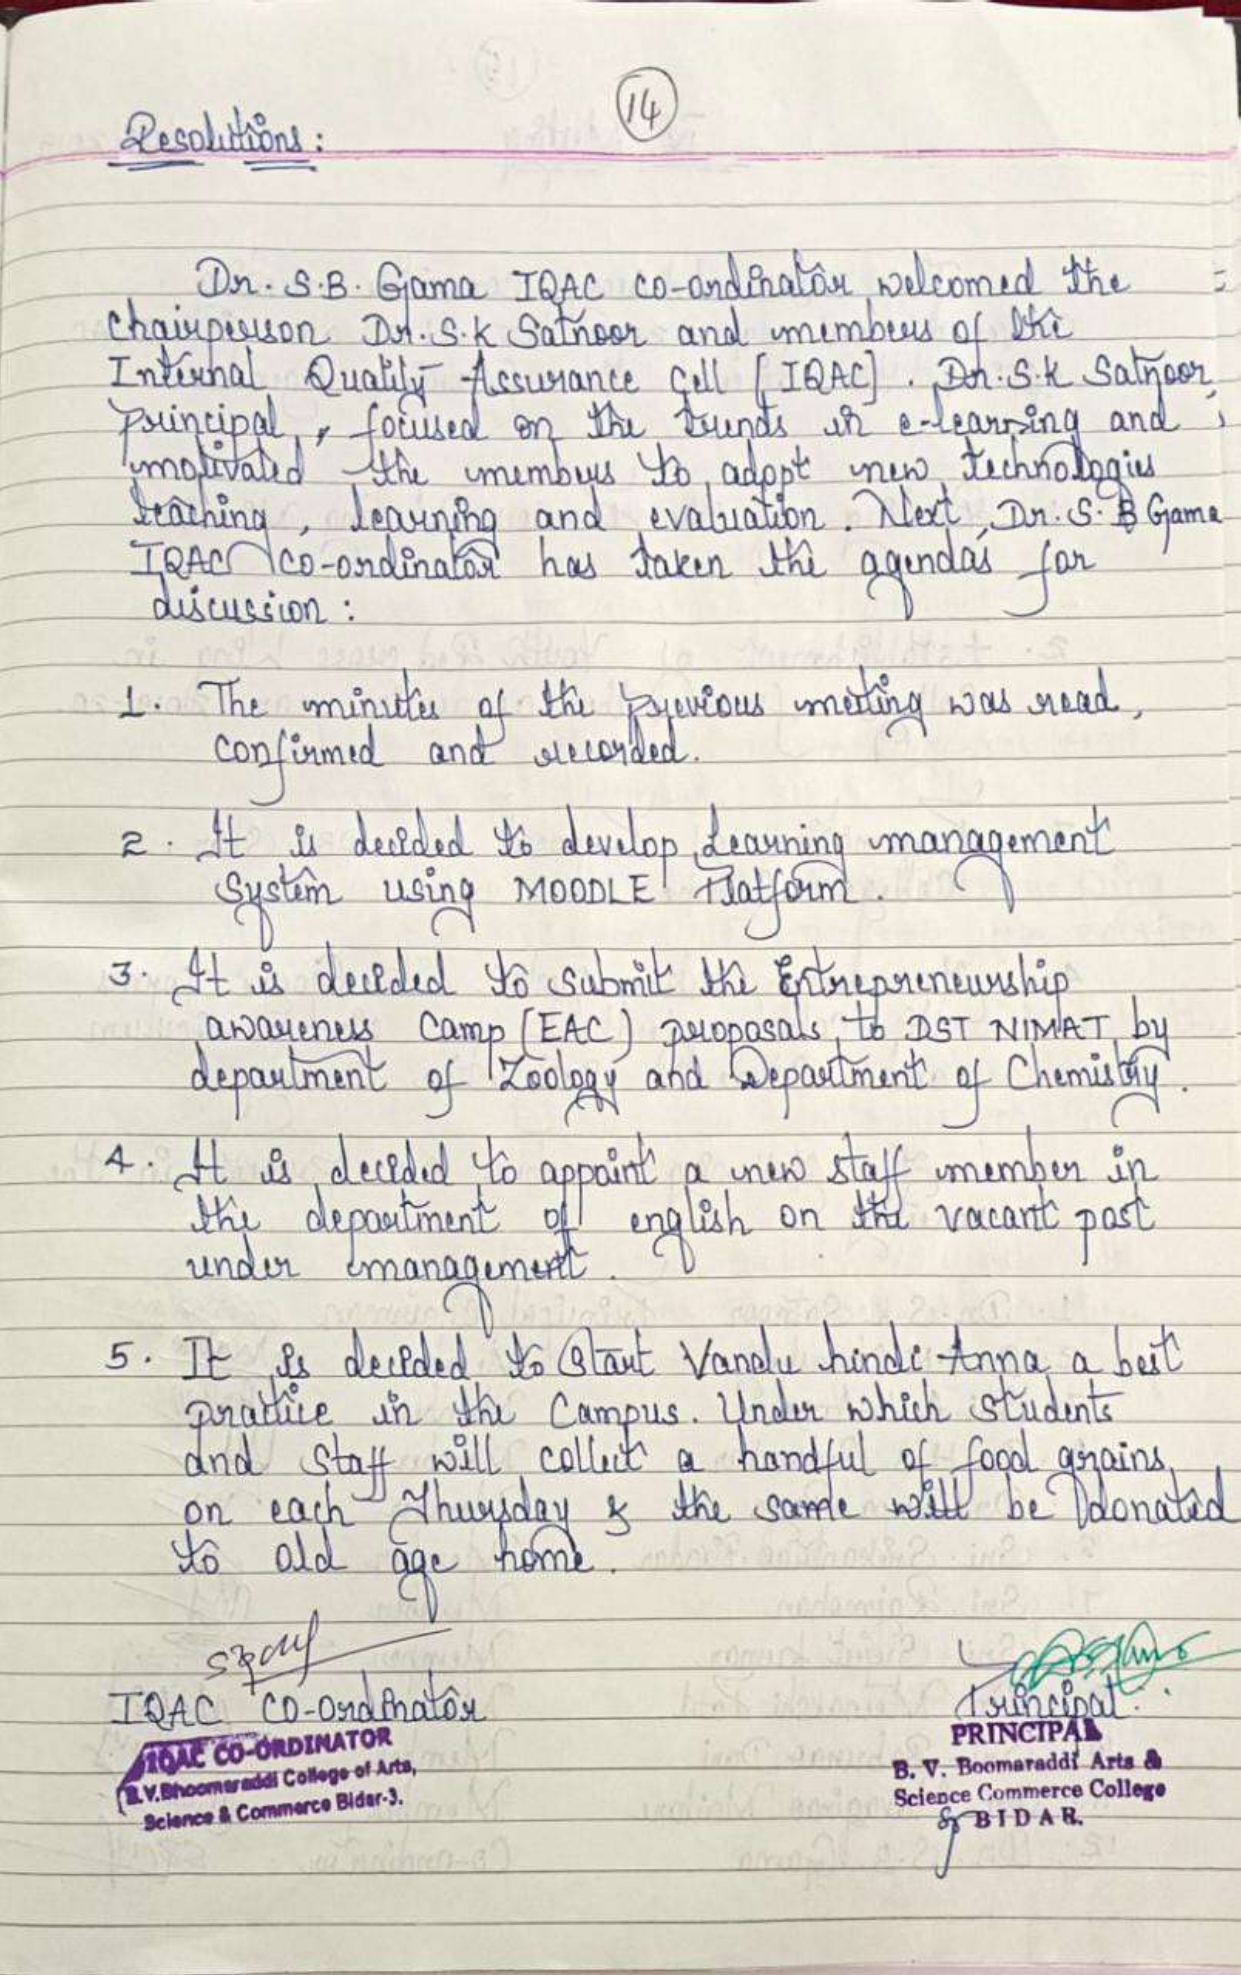 14
Resolutions :
Dr. S.B. Gama IQAC co-ordinator welcomed the
chairperson Dr. S.K Satnoor and members of the
Internal Quality Assurance Cell [IQAC]. Dr. S.K Satnoor,
principal, focused on the trends in e-learning and
motivated the members to adopt new technologies
teaching, learning and evaluation. Next, Dr. S.B Gama
IQAC co-ordinator has taken the agendas for
discussion :
1. The minutes of the previous meeting was read,
confirmed and recorded.
2. It is decided to develop Learning management
System using MOODLE Platform.
3. It is decided to submit the Entrepreneurship
awareness Camp [EAC] proposals to DST NIMAT by
department of Zoology and Department of Chemistry.
4. It is decided to appoint a new staff member in
the department of english on the vacant post
under management.
5. It is decided to Start Vandu hindi Anna a best
practice in the Campus. Under which students
and staff will collect a handful of food grains
on each Thursday & the same will be donated
to old age home.
IQAC CO-Ordinator
Principal.
IQAC CO-ORDINATOR
B.V.Bhoomaraddi College of Arts,
Science & Commerce Bidar-3.
PRINCIPAL
B. V. Boomaraddi Arts &
Science Commerce College
BIDAR.